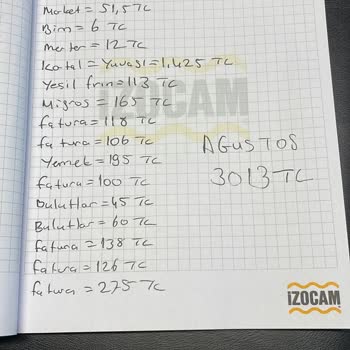 Market = 51,5 TC
Bim = 6 TC
Merter = 12 TC
Kartal = Yuvası = 1,425 TC
Yesil frin = 113 TC
Migros = 165 TC
fatura = 118 TC
fatura = 106 TC
Yemek = 195 TC
fatura = 100 TC
Bulutlar = 45 TC
Bulutlar = 60 TC
fatura = 138 TC
fatura = 126 TC
fatura = 275 TC
İZOCAM
AGUSTOS
3013 TC
İZOCAM